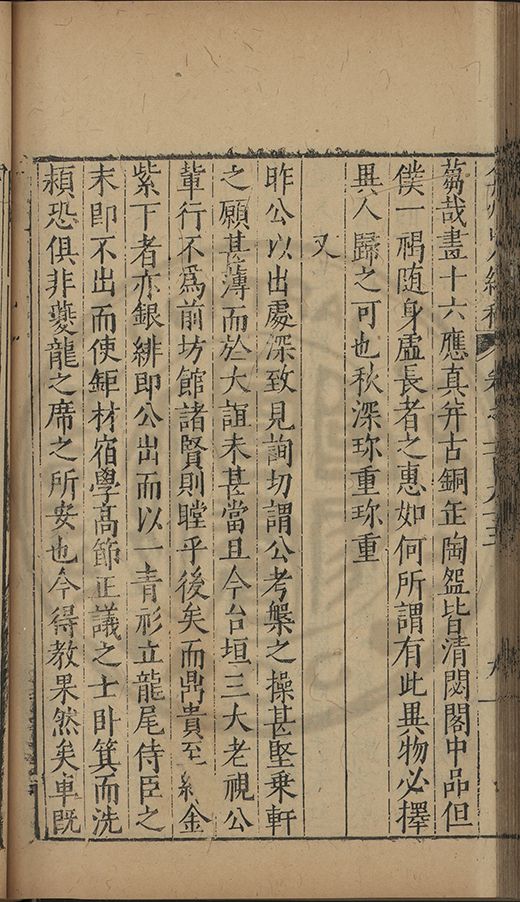 蒭哉畫十六應真并古銅缶陶盌皆清閟閣中品但
僕一禂随身虛長者之惠如何所謂有此異物必擇
異人歸之可也秋深珎重珎重
又
昨公以出處深致見詢切謂公考槃之操甚堅乗軒
之願甚薄而於大誼未甚當且今台垣三大老視公
軰行不爲前坊館諸賢則瞠乎後矣而鼎貴至 金
紫下者亦銀緋即公出而以一青衫立龍尾侍臣之
末即不出而使鉅材宿學髙節正議之士卧箕而洗
頴恐俱非夔龍之席之所安也今得教果然矣車既